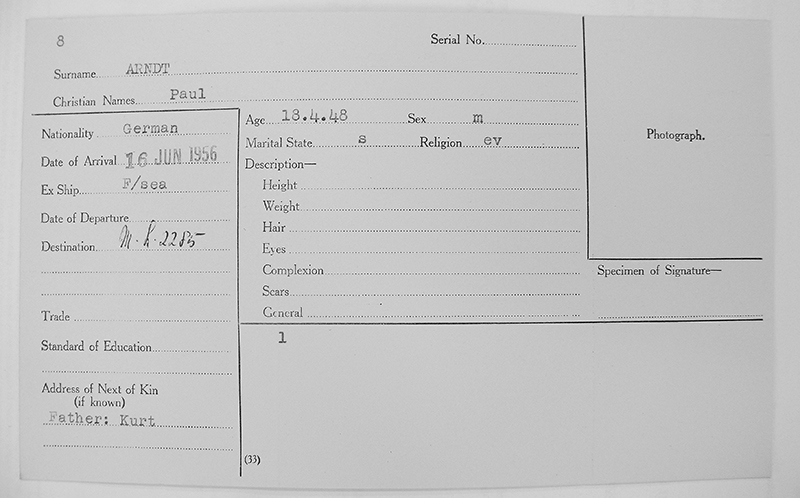 8
Serial No.
Surname ARNDT
Christian Names Paul
Nationality German
Date of Arrival 16 JUN 1956
Ex Ship F/sea
Date of Departure
Destination M.R. 2285
Trade
Standard of Education
Address of Next of Kin
(if known)
Father: Kurt
Age 13.4.48 Sex m
Marital State s Religion ev
Description—
Height
Weight
Hair
Eyes
Complexion
Scars
General
1
(33)
Photograph.
Specimen of Signature—